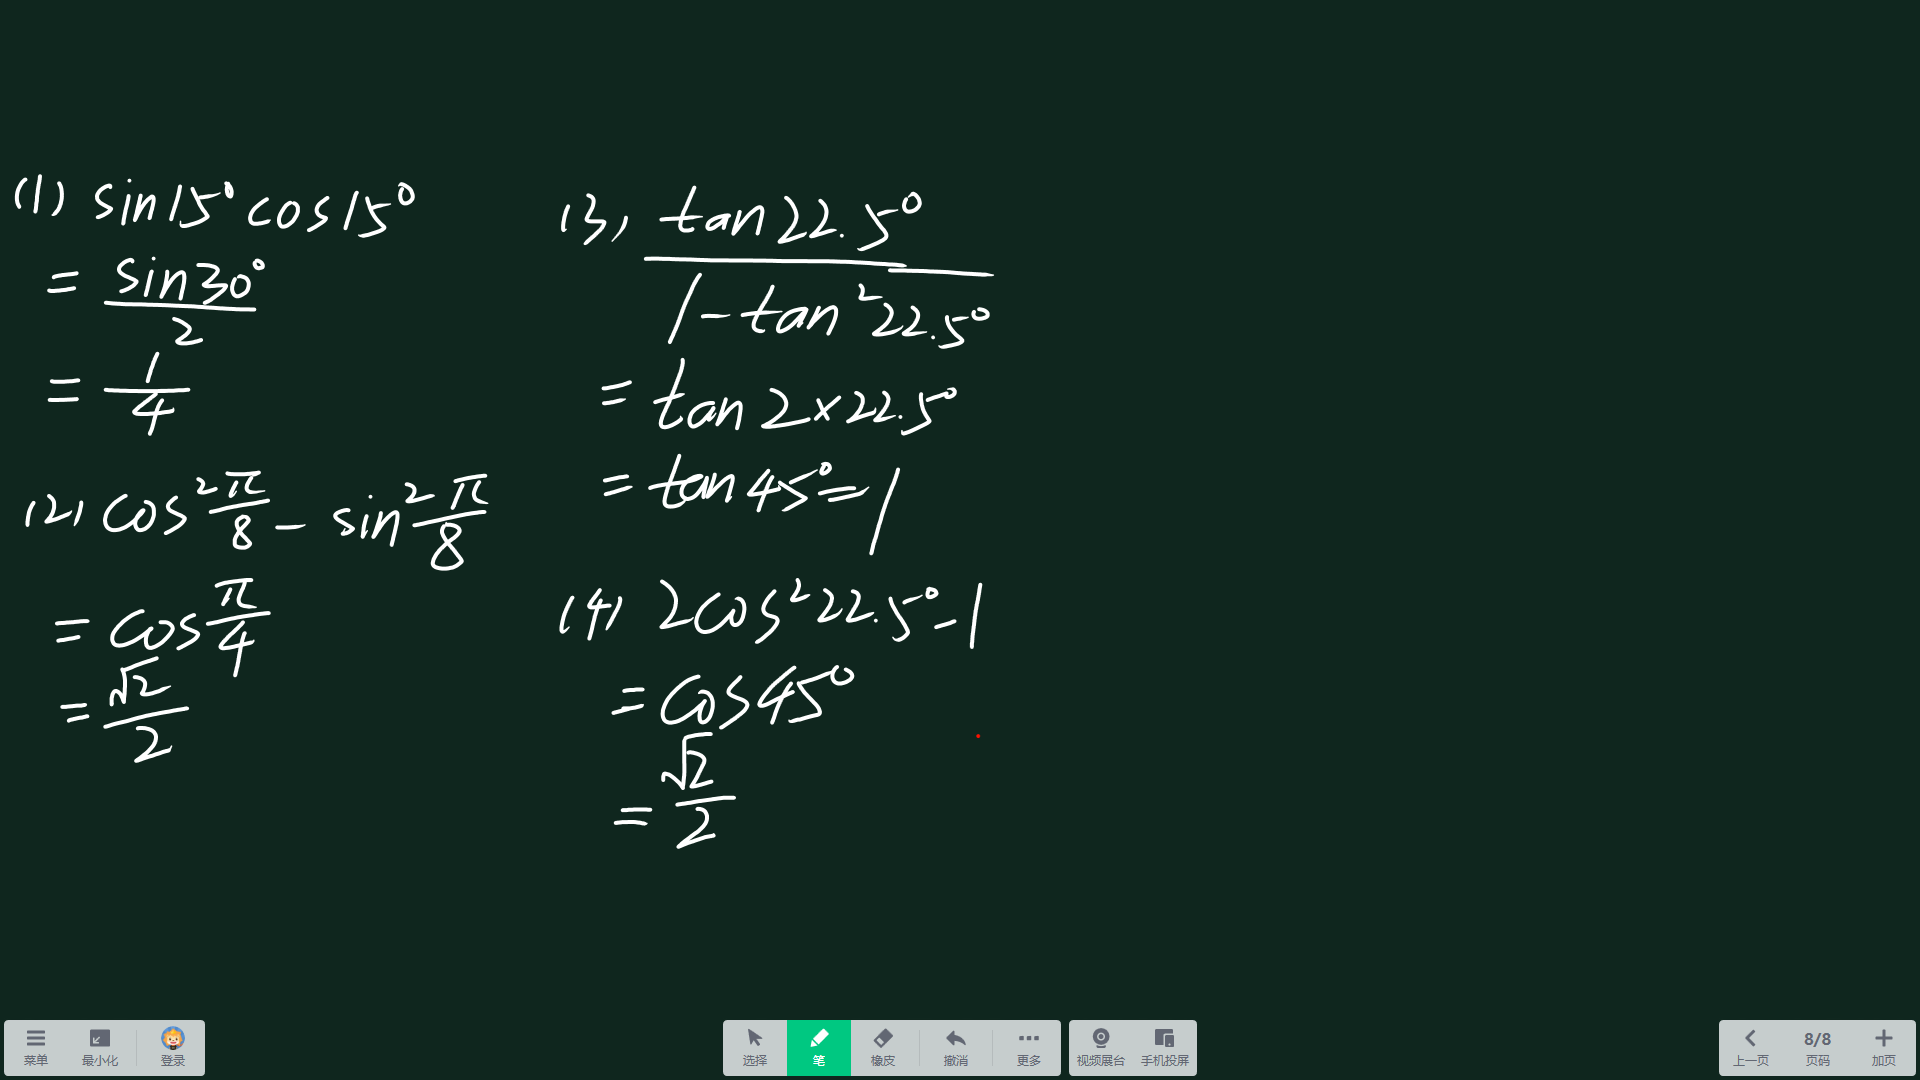 (1) sin15°cos15°
= sin30°/2
= 1/4
(2) cos²π/8 - sin²π/8
= cosπ/4
= √2/2
(3) tan22.5°/1-tan²22.5°
= tan2×22.5°
= tan45°=1
(4) 2cos²22.5°-1
= cos45°
= √2/2
菜单 最小化 登录 选择 笔 橡皮 撤消 更多 视频展台 手机投屏 上一页 8/8 页码 加页